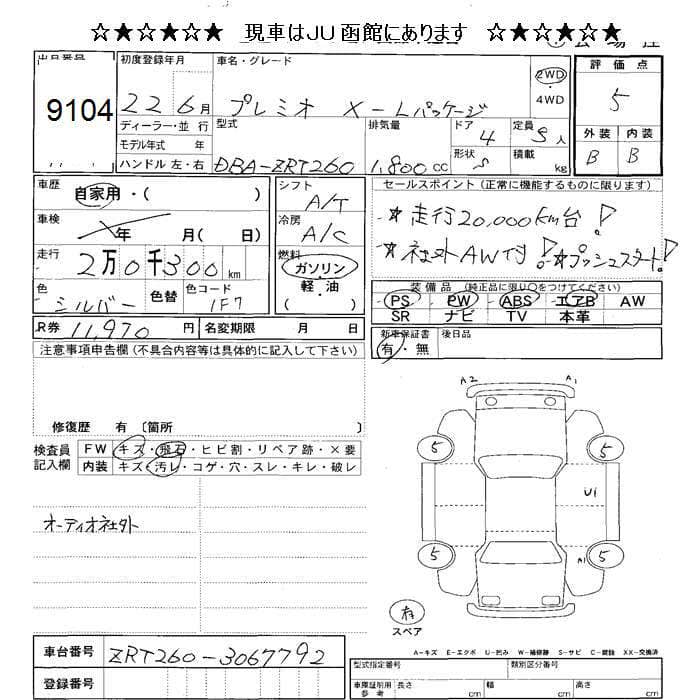 ☆★☆★☆★ 現車はJU函館にあります ☆★☆★☆★
初度登録年月 車名・グレード 評価点
9104 22年6月 プレミオ X-Lパッケージ 2WD 5
4WD
ディーラー・並 行 型式 排気量 ドア 4 定員 5人 外装 内装
モデル年式 年 B B
ハンドル 左・右 DBA-ZRT260 1,800cc 形状 S 積載 kg
車歴 自家用・( ) シフト A/T セールスポイント(正常に機能するものに限ります)
車検 年 月(日) 冷房 A/C ☆走行20,000Km台!
走行 2万0千300km 燃料 ガソリン ☆社外AW付! ☆プッシュスタート!
軽・油 装備品(純正品に限り○をつけてください)
色 シルバー 色替 色コード 1F7 ( ) PS PW ABS エアB AW
SR ナビ TV 本革
R券 11,970円 名変期限 月 日 新車保証書 後日品
有・無
注意事項申告欄(不具合内容等は具体的に記入して下さい)
A2 A1
修復歴 有〔箇所 〕
検査員 FW キズ・飛石・ヒビ割・リペア跡・×要 5 5
記入欄 内装 キズ・汚レ・コゲ・穴・スレ・キレ・破レ
U1
オーディオ社外
5 A1 5
有
スペア
A-キズ E-エクボ U-凹み W-補修跡 S-サビ C-腐蝕 XX-交換済
車台番号 ZRT260-3067792 型式指定番号 類別区分番号
登録番号 車庫証明用 長さ cm 幅 cm 高さ cm
参考